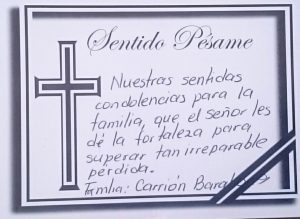 Sentido Pésame
Nuestras sentidas
condolencias para la
familia, que el señor les
dé la fortaleza para
superar tan irreparable
pérdida.
Fmlia: Carrión